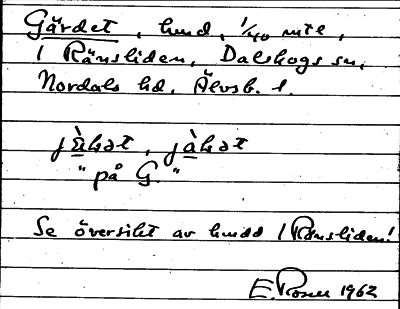 Gärdet, hmd, 1/40 mtl,
1 Ränsliden, Dalskogs sn,
Nordals hd, Älvsb. l.
jàhət, jàhət
" på G. "
Se översikt av hmdd 1 Ränsliden!
E. Rosell 1962